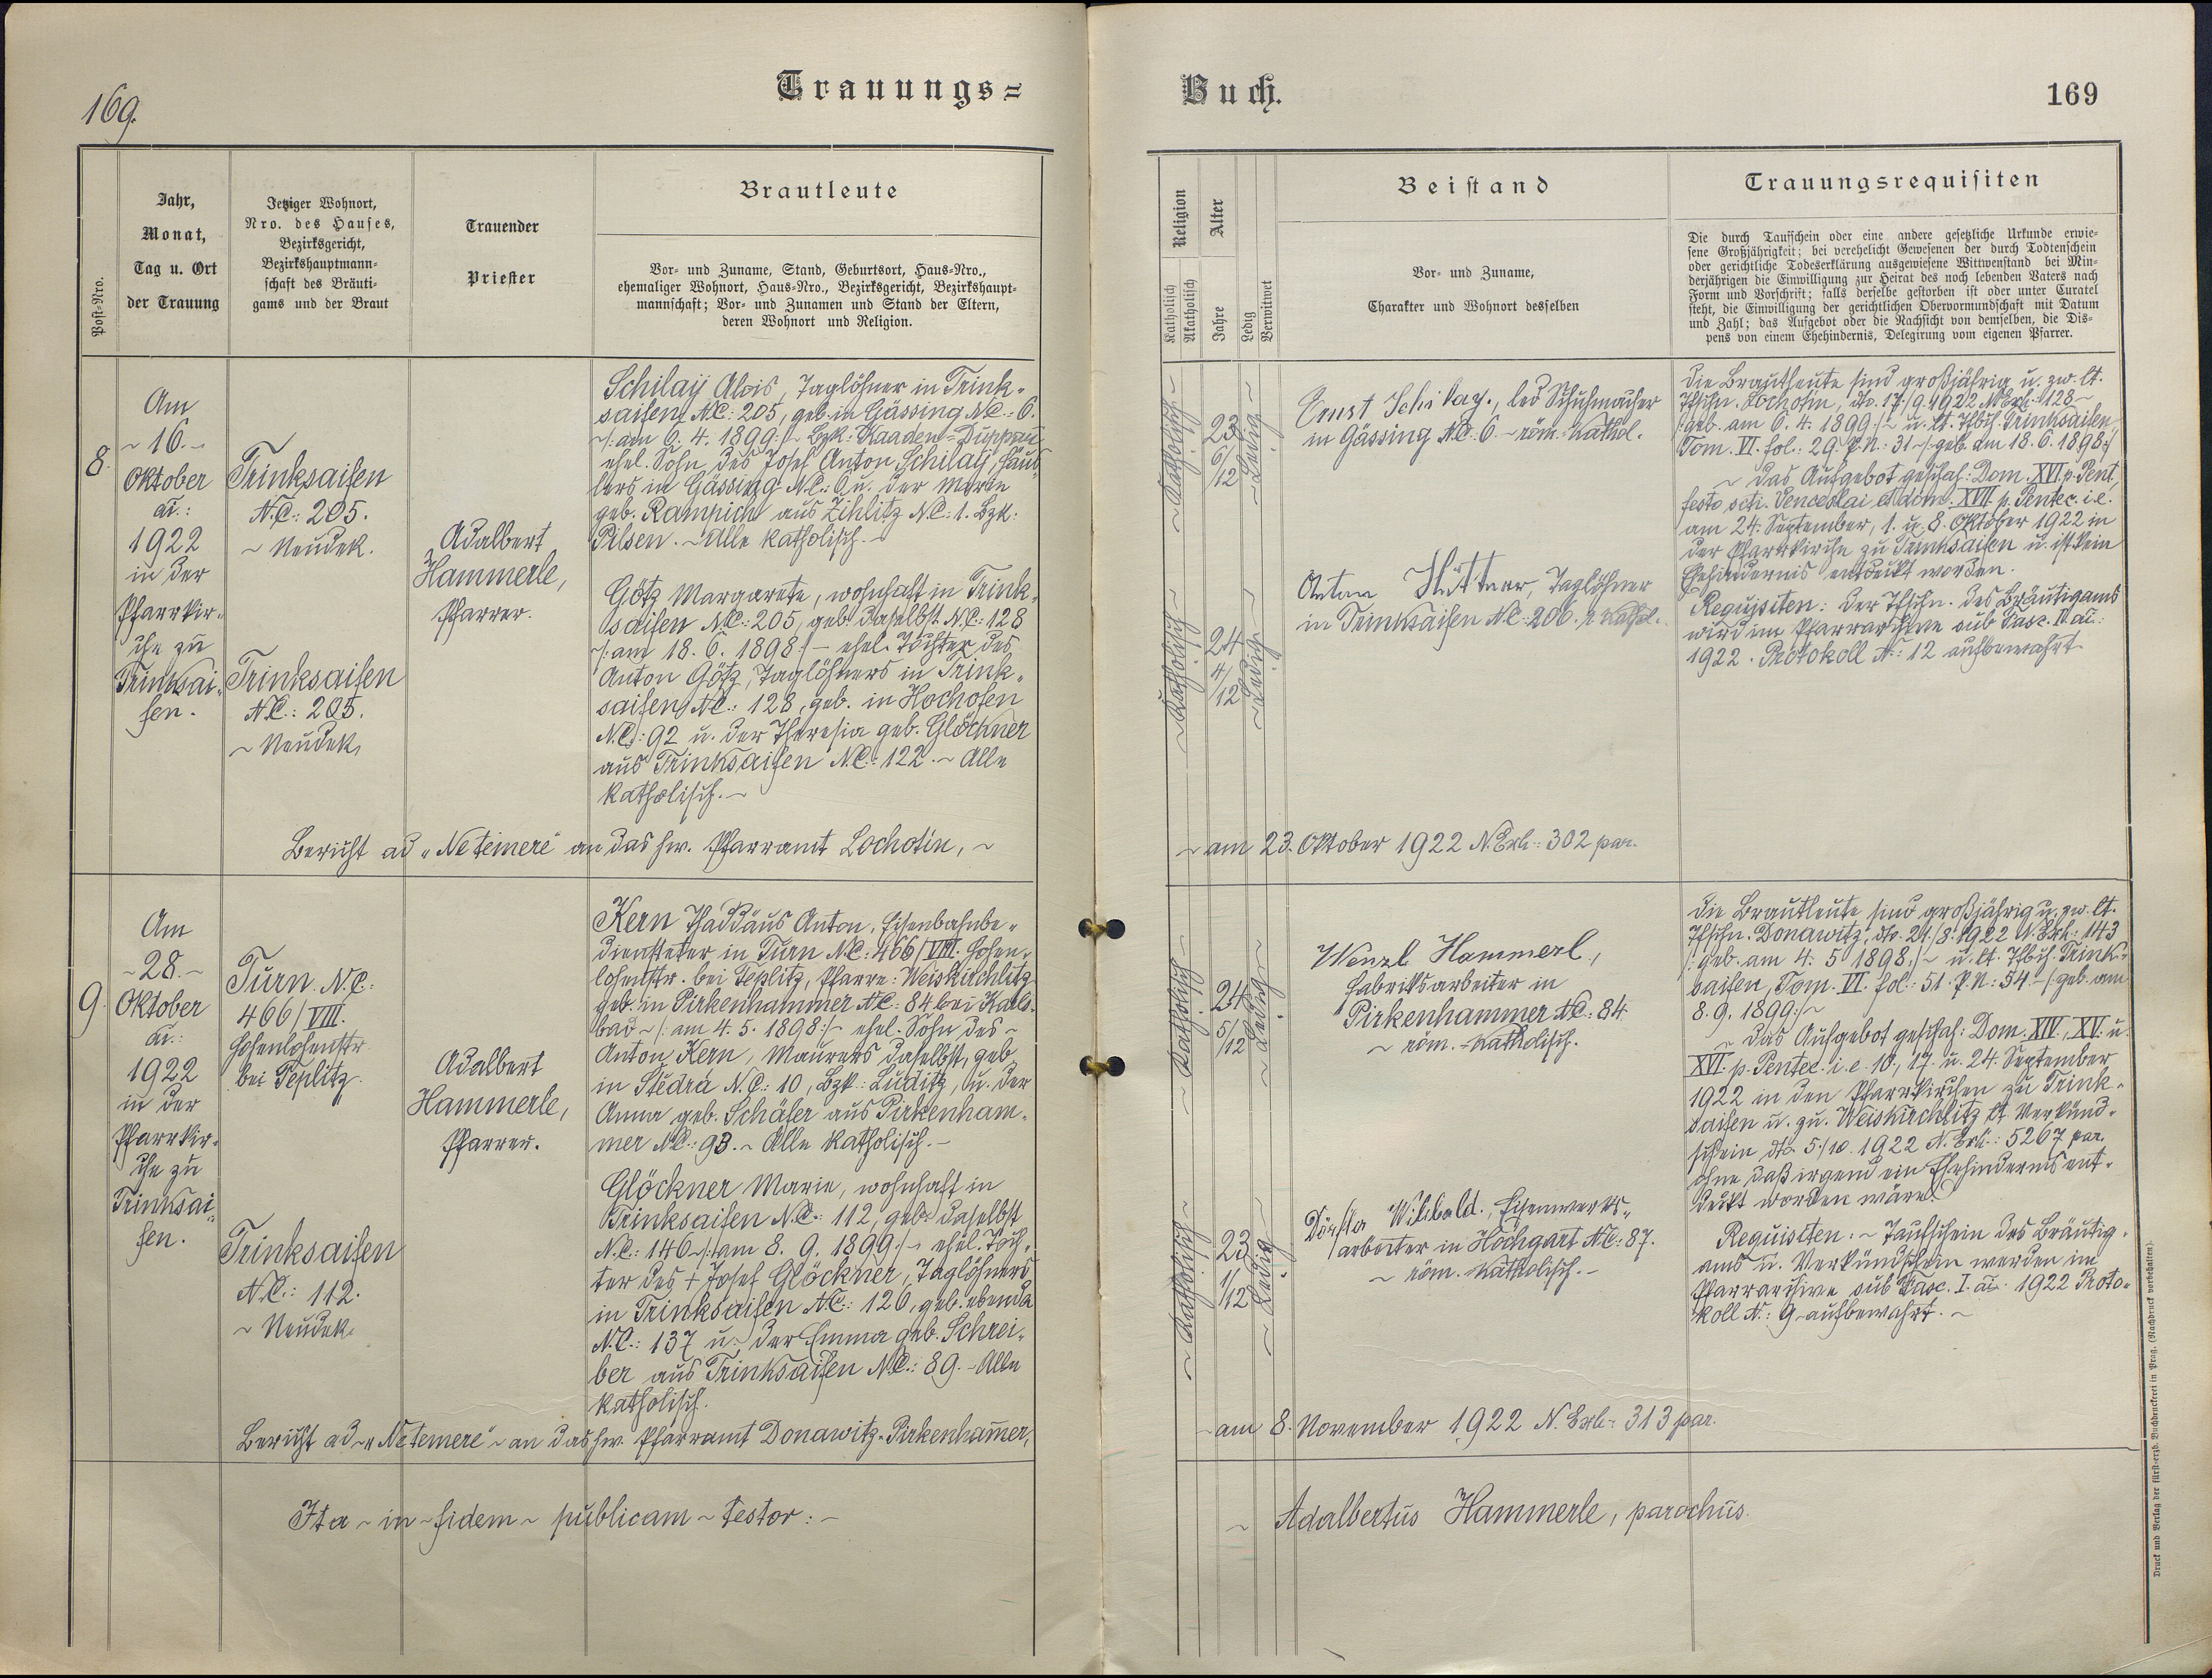 169.
Trauungs=
Post-Nro.
Jahr,
Monat,
Tag u. Ort
der Trauung
Jetziger Wohnort,
Nro. des Hauses,
Bezirksgericht,
Bezirkshauptmann-
schaft des Bräuti-
gams und der Braut
Trauender
Priester
Brautleute
Vor- und Zuname, Stand, Geburtsort, Haus-Nro.,
ehemaliger Wohnort, Haus-Nro., Bezirksgericht, Bezirkshaupt-
mannschaft; Vor- und Zunamen und Stand der Eltern,
deren Wohnort und Religion.
8.
Am
~ 16. ~
Oktober
ai.:
1922
in der
Pfarrkir-
che zu
Trinksai-
fen.
Trinksaifen
N.C.: 205.
~ Neudek.
Trinksaifen
N.C.: 205.
~ Neudek,
Adalbert
Hammerle,
Pfarrer.
Schilaÿ Alois, Taglöhner in Trink-
saifen N.C.: 205, geb. in Gässing N.C.: 6.
~/: am 6. 4. 1899 :/~ Bzk: Kaaden-Duppau
ehel. Sohn des Josef Anton Schilaÿ, Häus-
lers in Gässing N.C.: 6 u. der Marie
geb. Rampich aus Zihlitz N.C.: 1. Bzk:
Pilsen. ~ Alle katholisch. ~
Götz Margarete, wohnhaft in Trink-
saifen N.C.: 205, geb. daselbst N.C.: 128
/: am 18. 6. 1898 :/ – ehel. Tochter des
Anton Götz, Taglöhners in Trink-
saifen N.C.: 128, geb. in Hochofen
N.C.: 92 u. der Theresia geb. Glöckner
aus Trinksaifen N.C.: 122. ~ Alle
katholisch. ~
Bericht ad "Ne temere" an das hw. Pfarramt Lochotin, ~
9.
Am
~ 28. ~
Oktober
ai.:
1922
in der
Pfarrkir-
che zu
Trinksai-
fen.
Turn. N.C.:
466/VIII.
Hohenlohenstr.
bei Teplitz.
Trinksaifen
N.C.: 112.
~ Neudek.
Adalbert
Hammerle,
Pfarrer.
Kern Thaddäus Anton, Eisenbahnbe-
diensteter in Turn N.C.: 466/VIII. Hohen-
lohenstr. bei Teplitz, Pfarre: Weiskirchlitz
geb. in Pirkenhammer N.C.: 84 bei Karls-
bad ~/: am 4. 5. 1898 :/~ ehel. Sohn des ~
Anton Kern, Maurers daselbst, geb.
in Stědrá N.C.: 10, Bzk.: Luditz, u. der
Anna geb. Schäfer aus Pirkenham-
mer N.C.: 93. ~ Alle katholisch. –
Glöckner Marie, wohnhaft in
Trinksaifen N.C.: 112, geb. daselbst
N.C.: 146 ~/: am 8. 9. 1899 :/~ ehel. Toch-
ter des + Josef Glöckner, Taglöhners
in Trinksaifen N.C.: 126, geb. ebenda
N.C.: 137 u. der Emma geb. Schrei-
ber aus Trinksaifen N.C.: 89. – Alle
katholisch.
Bericht ad ~ "Ne temere" ~ an das hw. Pfarramt Donawitz-Pirkenham̄er,
Ita ~ in ~ fidem ~ publicam ~ testor: ~
Buch.
169
Religion
Katholisch
Akatholisch
Alter
Jahre
Ledig
Verwitwet
Beistand
Vor- und Zuname,
Charakter und Wohnort desselben
Trauungsrequisiten
Die durch Taufschein oder eine andere gesetzliche Urkunde erwie-
sene Großjährigkeit; bei verehelicht Gewesenen der durch Todtenschein
oder gerichtliche Todeserklärung ausgewiesene Wittwenstand bei Min-
derjährigen die Einwilligung zur Heirat des noch lebenden Vaters nach
Form und Vorschrift; falls derselbe gestorben ist oder unter Curatel
steht, die Einwilligung der gerichtlichen Obervormundschaft mit Datum
und Zahl; das Aufgebot oder die Nachsicht von demselben, die Dis-
pens von einem Ehehindernis, Delegirung vom eigenen Pfarrer.
~ Katholisch ~
23
6/12
~ Ledig ~
~ Katholisch ~
24
4/12
~ Ledig ~
Ernst Schilay., led. Schuhmacher
in Gässing N.C. 6. ~ röm.-kathol.
Anton Hüttner, Taglöhner
in Trinksaifen N.C.: 206. r. kathol.
Die Brautleute sind großjährig u. zw. lt.
Tfschn. Lochotin, dto. 17./9. 1922 N. Exh.: 1128 ~
/: geb. am 6. 4. 1899 :/~ u. lt. Tfbch. Trinksaifen,
Tom. VI. fol.: 29. P.N.: 31 ~/: geb. am 18. 6. 1898 :/
~ Das Aufgebot geschah: Dom. XVI. p. Pent.,
festo scti. Venceslai et dom. XVIII p. Pentec. i. e.
am 24. September, 1. u. 8. Oktober 1922 in
der Pfarrkirche zu Trinksaifen u. ist kein
Ehehindernis entdeckt worden.
Requisiten: Der Tfschn. des Bräutigams
wird im Pfarrarchive sub Fasc. II. ai.:
1922. Protokoll N.: 12 aufbewahrt.
~ am 23. Oktober 1922 N. Exh.: 302 par.
~ Katholisch ~
24
5/12
~ Ledig ~
~ Katholisch ~
23
1/12
~ Ledig ~
Wenzl Hammerl.,
Fabriksarbeiter in
Pirkenhammer N.C.: 84
~ röm. - katholisch.
Dörfler Wilibald., Eisenwerks-
arbeiter in Hochgart N.C.: 87.
~ röm. katholisch. –
Die Brautleute sind großjährig u. zw. lt.
Tfschn. Donawitz, dto. 21./8. 1922 N. Exh.: 143
/: geb. am 4. 5. 1898 :/~ u. lt. Tfbch. Trink-
saifen, Tom. VI. fol.: 51. P.N.: 54. ~ /: geb. am
8. 9. 1899 :/~
~ Das Aufgebot geschah: Dom. XIV., XV. u.
XVI. p. Pentec. i. e. 10., 17. u. 24. September
1922 in den Pfarrkirchen zu Trink-
saifen u. zu. Weiskirchlitz lt. Verkünd-
schein dto. 5./10. 1922 N. Exh.: 5267 par.
ohne daß irgend ein Ehehindernis ent-
deckt worden wäre.
Requisiten. ~ Taufschein des Bräutig-
ams u. Verkündschein werden im
Pfarrarchive sub Fasc. I. ai.: 1922 Proto-
koll N.: 9 aufbewahrt. ~
~ am 8. November 1922 N. Exh.: 313 par.
~ Adalbertus Hammerle, parochus.
Druck und Verlag der fürst-erzb. Buchdruckerei in Prag. (Nachdruck vorbehalten).